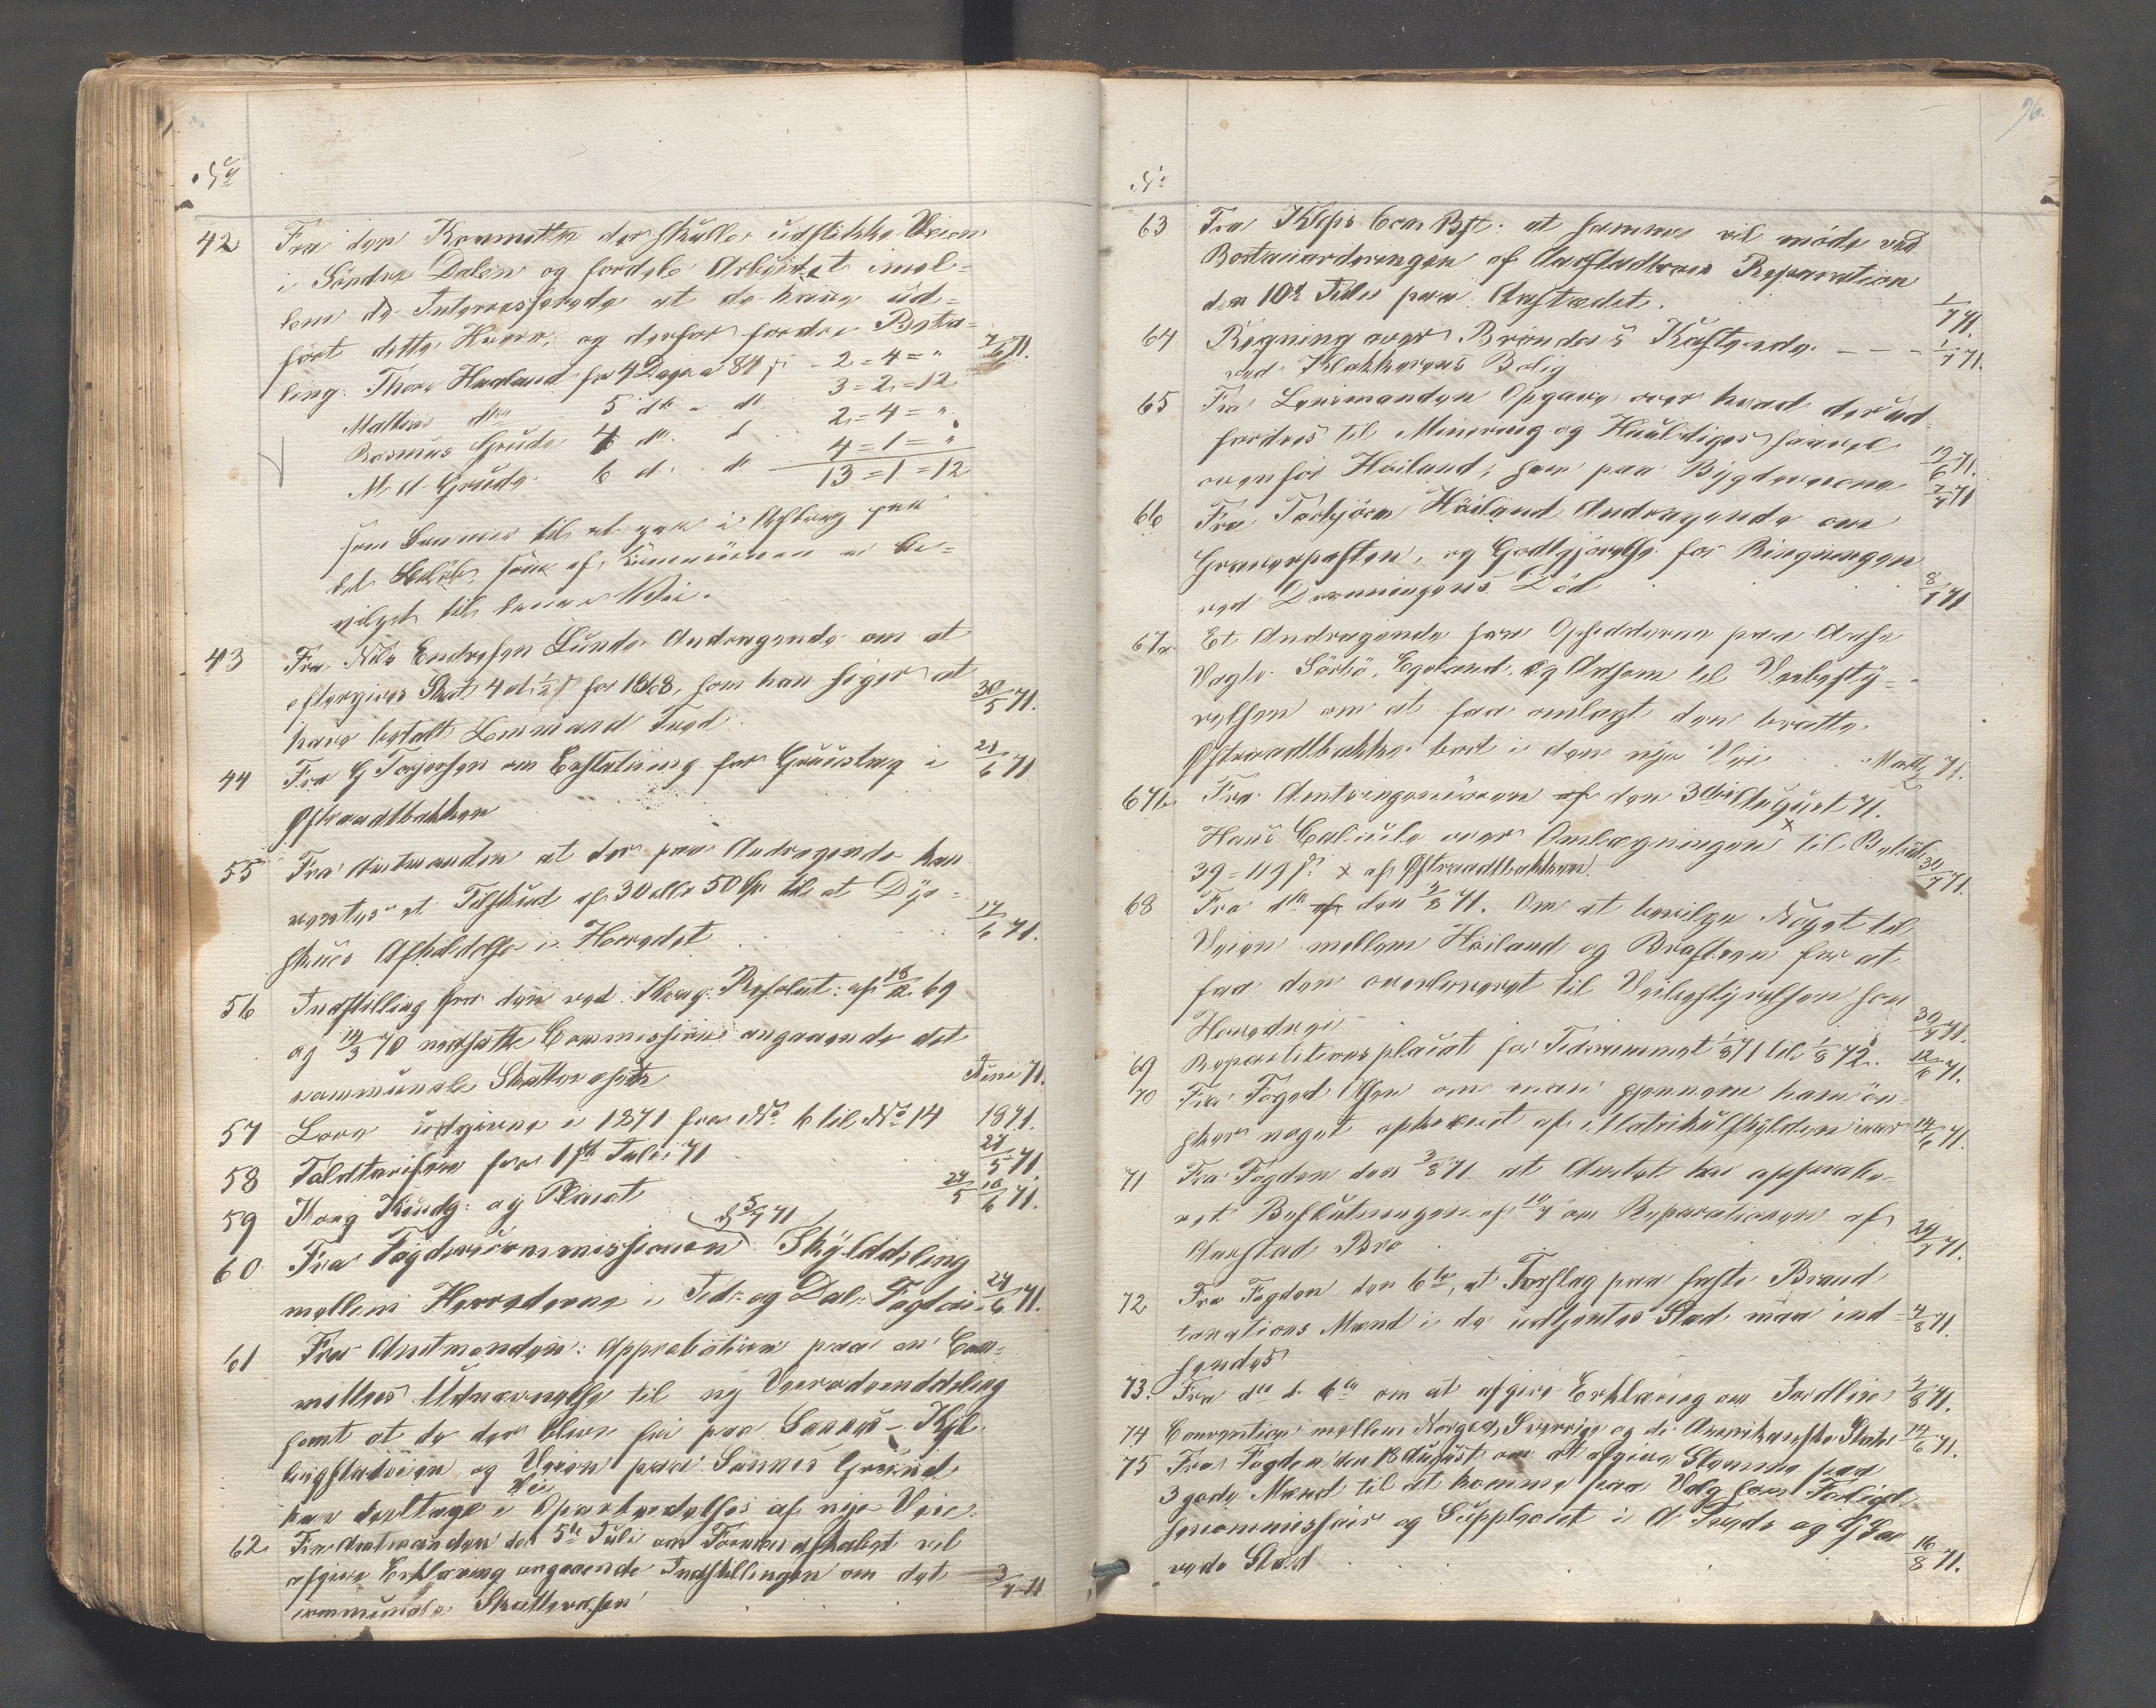 No
42 Fra den Kommitte der skulle udstikke Veien
i Søndre Dalen og fordele Arbeidet imel=
lem de Interesserede at de have ud=
ført dette Hverv, og derfor fordre Beta=
ling: Thore Haaland for 4 Dage a 84 s - 2 = 4 = " 7/6 71.
Mathis do 5 do " do 3 = 2 = 12
Rasmus Grude 4 do d 2 = 4 = "
M. A. Grude 6 d. do 4 = 1 = "
13 = 1 = 12
som kommer til at gaa i Afdrag paa
det Beløb, som af Kommunen er be=
vilget til denne Vei.
43 Fra Nils Endresen Lunde Andragende om at
eftergives Skat 4 d ½ s for 1868, som han siger at
have betalt Lensmand Tved. 30/5 71.
44 Fra G Torjersen om Erstatning for Gruustag i 21/6 71
Østraadtbakken
55 Fra Amtmanden at der paa Andragende kan
ventes et Tilskud af 30 eller 50 Spd til at Dyr=
skues Afholdelse i Herredet 17/6 71.
56 Indstilling fra den ved Kong: Resolut: af 18/12 69
og 14/3 70 nedsatte Commission angaaende det
kommunale Skattevæsen Juni 71.
57 Love udgivne i 1871 fra No 6 til No 14 1871.
58 Toldtariffen fra 1ste Juli 71 21/5 71
59 Kong Kundg: og Placat 24/5 10/6 71.
60 Fra Fogdericommissionen d 5/7 71 Skylddeling
mellem Herrederne i Jed: og Dal: Fogderi 24/6 71.
61 Fra Amtmanden: Approbation paa en Com=
mittees Udnævnelse til ny Veirodeinddeling
samt at de der blive fri paa Sannes - Kjl
lingstadveien og Veien paa Sannes Grund
kan deeltage i Vei Oparbeidelse af nye Veie.
62 Fra Amtmanden den 5te Juli om Formandskabet vil
afgive Erklæring angaaende Indstillingen om det 3/7 71
kommunale Skattevæsen
96.
No
63 Fra Kleps Com Bst. at samme vil møde ved
Bortauxarderingen af Aarstadbroes Reparation
den 10de Juli paa Aastedet. 1/7 71.
64 Regning over Brøndens Kastende - - - 1/7 71.
ved Klokkerens Bolig
65 Fra Lensmanden Opgave over hvad der ud
fordres til Minering og Huuldiges saavel
ovenfor Høiland, som paa Bygdeveiene 19/6 71.
66 Fra Torbjørn Høiland Andragende om 7/7 71
Graverposten, og Godtgjørelse for Ringningen
ved Dronningens Død 8/7 71
67a Et Andragende fra Opsidderne paa Aase
Vagle Sørbø, Egeland, og Aasem til Veibesty=
relsen om at faa omlagt den bratte
Østraadtbakke bort i den nye Vei. Marts 71.
67b. Fra Amtsingeniøren af den 3die August 71.
Hans Calcule over Omlægningen x til Beløb
39 - 119 s. x af Østraadtbakken. 31/7 71.
68 Fra do af den 3/8 71. Om at bevilge Noget til
Veien mellem Høiland og Brasteen for at
faa den overleveret til Veibestyrelsen som
Hovedvei 30/7 71.
69 Repartitionsplacat for Tidsrummet 1/8 71 til 1/8 72. 12/6 71.
70 Fra Foged Olsen om man gjennem ham øn
sker noget aftrykt af Matrikulskylden inar 14/6 71.
71 Fra Fogden den 3/8 71 at Amtet har approbe-
ret Beslutningen af 10/7 om Reparationen af
Aarstad Bro 29/7 71.
72 Fra Fogden den 6te, at Forslag paa faste Brand
taxations Mænd i de udtjentes Sted maa ind= 4/8 71.
sendes
73. Fra do d. 6te om at afgive Erklæring om Jordleie 4/8 71.
74 Convention mellem Norge, Sverrige og de Amerikanske Stater 14/6 71.
75 Fra Fogden den 18 August om at afgive Stemme paa
3 gode Mænd til at komme paa Valg som Forligel
sescommissair og Suppleant i A Tveds og G Sa
veds Sted 16/8 71.